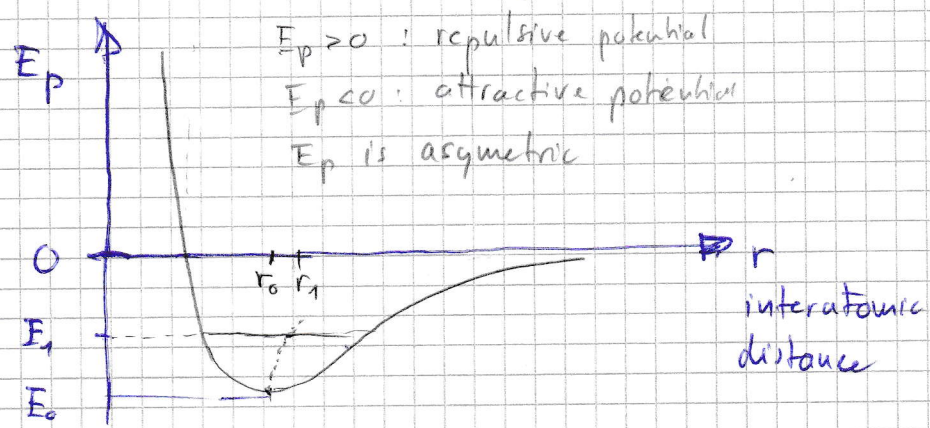 E_p
E_p > 0 : repulsive potential
E_p < 0 : attractive potential
E_p is asymetric
0
r_0 r_1
r
interatomic
distance
E_1
E_0